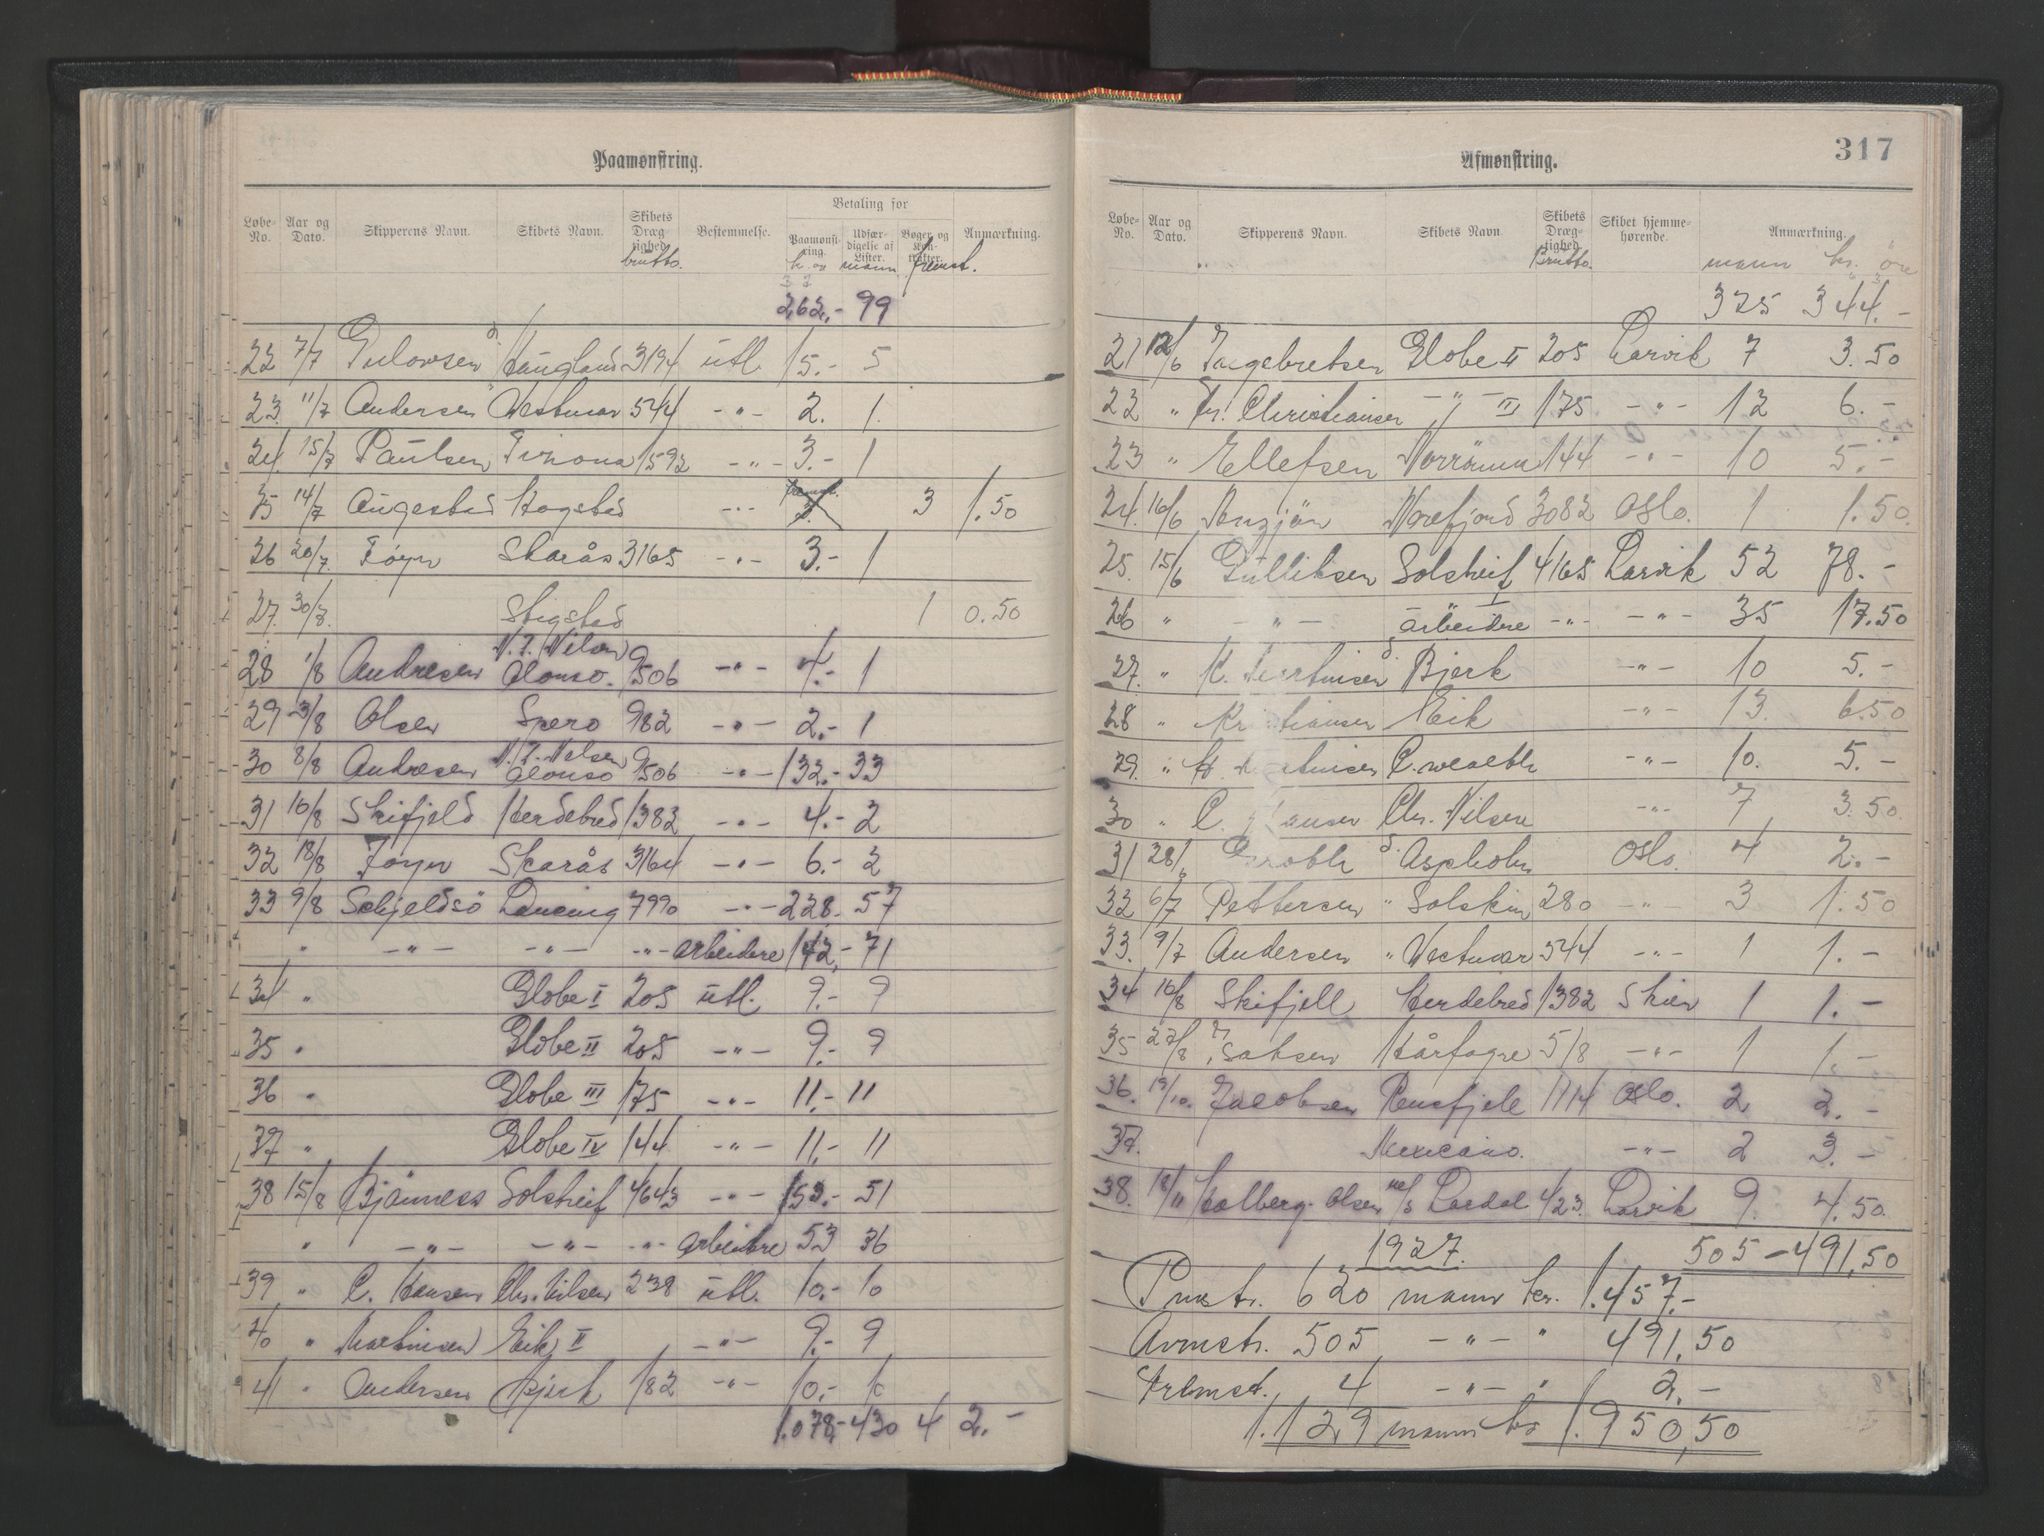 Paamønstring.
Løbe-No. Aar og Dato. Skipperens Navn. Skibets Navn. Skibets Dræg-tighed brutto. Bestemmelse. Betaling for Paamønst-ring. Udfær-digelse af Lister. Bøger og Kon-trakter. Anmærkning.
kr. mann fremst.
262,- 99
22 7/7 Gulowsen Haugland 3194 utl. 15.- 5
23. 11/7 Andersen Vestmar 544 -"- 2. 1.
24. 15/7 Paulsen 1592 -"- 3.- 1
25 14/7 Augestad Hogstad -"- 3 1.50
26 20/7. Føyn Skarås 3165 -"- 3.- 1
27. 30/7. Stigstad 1 0.50
28 1/8 Andresen N.T. Nielsen Alonso. 9506 -"- 4.- 1
29 3/8 Olsen Spero 982 -"- 2.- 1
30 8/8 Andresen N.T. Nielsen Alonso 9506 -"- 132.- 33
31 10/8 Skifjeld Herdebred 1382 -"- 4.- 2
32 18/8 Føyn Skarås 3164 -"- 6.- 2
33 9/8 Schjeldsö Lancing 7990 -"- 228.- 57
" -"- -"- -"- arbeidere 142,- 71
34 " Globe I 205 utl. 9.- 9
35 " Globe II 205 -"- 9.- 9
36 " Globe III 175 -"- 11.- 11
37 " Globe IV 144 -"- 11.- 11
38 15/8 Bjönness Solstreif 4643 -"- 153.- 51
" -"- -"- -"- arbeidere 53 36
39 " C. Hansen Chr. Nilsen 238 utl. 10.- 10
40 " Martinisen Eik II -"- 9.- 9
41 " Andersen Bjerk 182 -"- 10.- 10
1.078,- 430 4 2.-
317
Afmønstring.
Løbe-No. Aar og Dato. Skipperens Navn. Skibets Navn Skibets Dræg-tighed Brutto. Skibet hjemme-hørende. Anmærkning.
mann kr. öre
325 344.-
21 12/6 Ingebretsen Globe II 205 Larvik 7 3.50
22 " Kr. Christiansen -"- III 175 -"- 12 6.-
23 " Ellefsen Norrönna 144 -"- 10 5.-
24. 16/6 Norefjord 3082 Oslo. 1 1.50.
25. 15/6 Gulliksen Solstreif 4165 Larvik 52 78.-
26 " -"- arbeidere -"- -"- 35 17.50
27. " Bjerk -"- 10 5.-
28 " Kristiansen Eik -"- 13. 6.50
29. " C. wealth -"- 10. 5.-
30 " C. Hansen Chr. Nilsen -"- 7 3.50.
31 28/6 Aspholm Oslo. 4 2.-
32 6/7 Pettersen " Solskin 280 -"- 3 1.50
33. 9/7 Andersen " Vestmar 544 -"- 1 1.-
34 10/8 Skifjell Herdebred 1382 Skien 1 1.-
35 22/8 Isaksen Hårfagre 518 -"- 1 1.-
36. 19/10. Jacobsen Rensfjell 1114 Oslo. 2 2.-
37. Mexicano. -"- 2 3.-
38. 18/11 Holberg-Olsen m/s Lardal 423. Larvik 9. 4.50.
1927. 505 - 491,50
Pmstr. 620 mann kr. 1.457.-
Avmstr. 505 -"- " 491.50
Fremst. 4 -"- " 2.-
1.129 mann kr 1.950,50